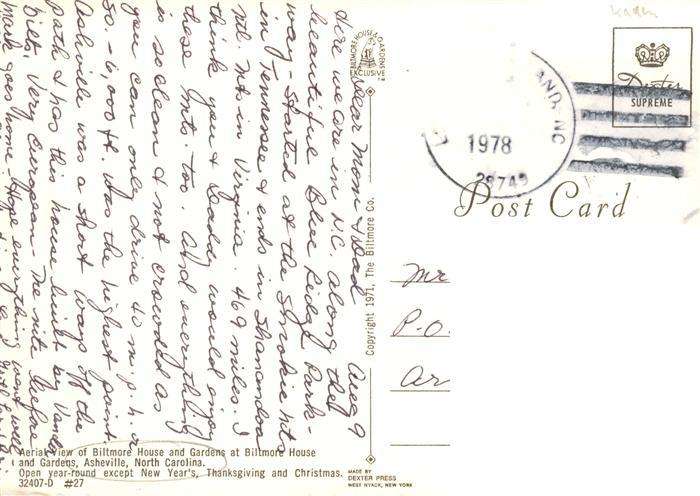 Aug 9
Dear Mom & Dad
Here we are in N.C. along that
beautiful Blue Ridge Park-
way - Started at the Smokie Mts
in Tennessee & ends in Shanandoa
Ntl Pk in Virginia. 469 miles. I
think you & Daddy would enjoy
these mts. too. And everything
is so clean & not crowded as
you can only drive 40 m.p.h. or
so. - 6,000 ft. was the highest point.
Ashville was a short ways off the
path & has this house built by Vander
bilts. Very European - The nite before
Mark goes home - Hope everything went well
BILTMORE HOUSE & GARDENS
EXCLUSIVE
Copyright 1971, The Biltmore Co.
Karen
Dexter
SUPREME
AND, NC
1978
28749
Post Card
Mr
P.O.
Ar
Aerial View of Biltmore House and Gardens at Biltmore House
and Gardens, Asheville, North Carolina.
Open year-round except New Year's, Thanksgiving and Christmas.
32407-D #27
MADE BY
DEXTER PRESS
WEST NYACK, NEW YORK